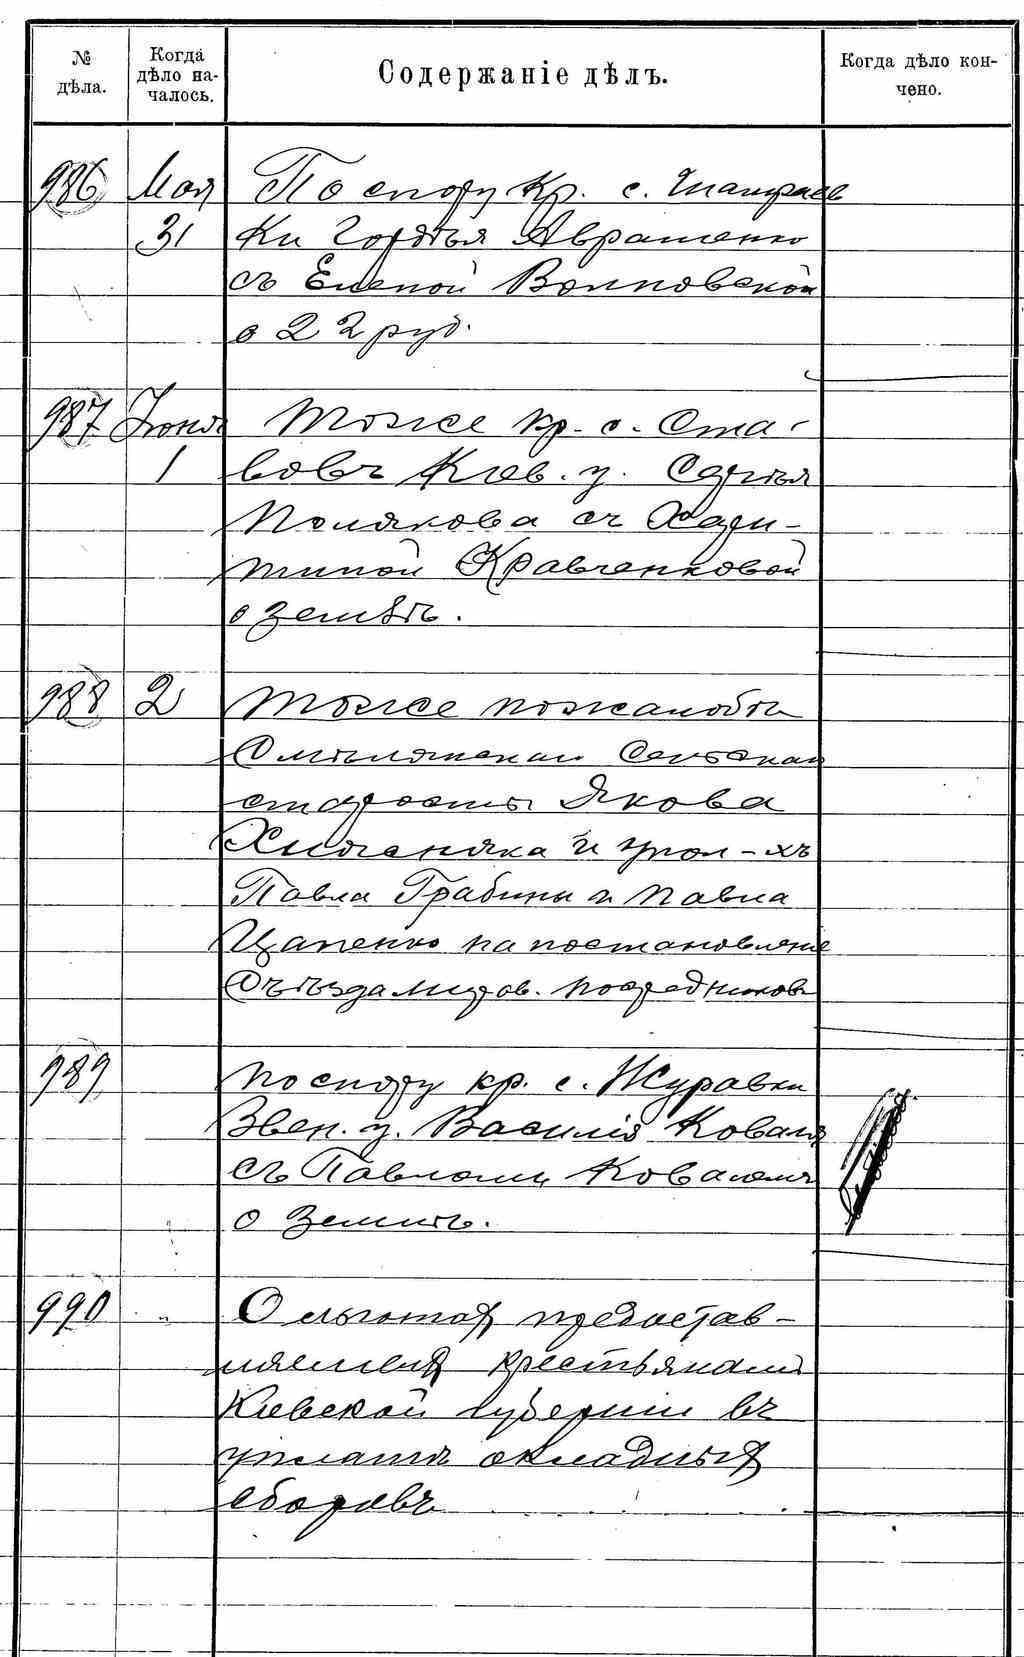 № дѣла.
Когда дѣло на-
чалось.
Содержаніе дѣлъ.
Когда дѣло кон-
чено.
986 Мая По спору Кр. с.
31 ки Гордѣя Авраменко
съ Еленой Волковской
о 22 руб.
987 Іюня Тоже кр. с. Ста-
1 вовъ Кіев. у. Сергѣя
Полякова съ Хари-
тиной Кравченковой
о землѣ.
988 2 Тоже по жалобѣ
Омельянскаго Сельскаго
старосты Якова
и упол-хъ
Павла Грабины и Павла
Цапенко на постановленіе
Съѣзда миров. посредниковъ
989 По спору кр. с. Журавки
Звен. у. Василія Коваля
съ Павломъ Ковалемъ
о землѣ.
990 О льготах предостав-
ляемых крестьянамъ
Кіевской губерніи въ
уплатѣ окладных
сборовъ